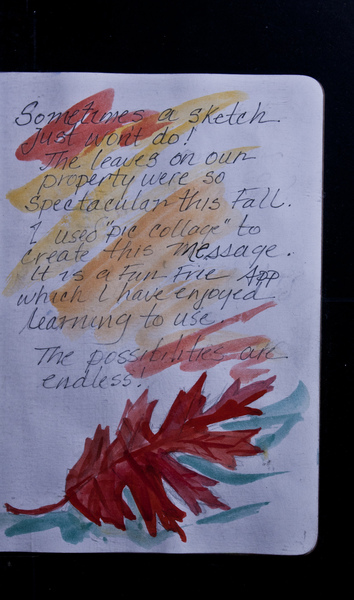 Sometimes a sketch
Just wont do!
The leaves on our
property were so
spectacular this Fall.
I used "pic collage" to
create this message.
It is a Fun Free App
which I have enjoyed
learning to use.
The possibilities are
endless!